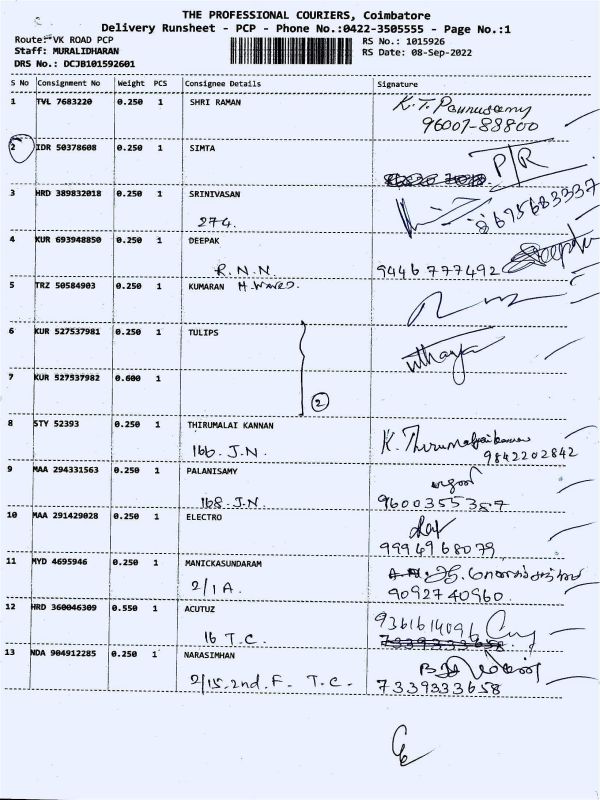 THE PROFESSIONAL COURIERS, Coimbatore
Delivery Runsheet - PCP - Phone No.:0422-3505555 - Page No.:1
Route: VK ROAD PCP
RS No.: 1015926
Staff: MURALIDHARAN
RS Date: 08-Sep-2022
DRS No.: DCJB101592601
S No Consignment No Weight PCS Consignee Details Signature
1 TVL 7683220 0.250 1 SHRI RAMAN K.T. Ponnusamy
96007-88800
2 IDR 50378608 0.250 1 SIMTA P/R
3 HRD 389832018 0.250 1 SRINIVASAN 8675683337
274.
4 KUR 693948850 0.250 1 DEEPAK
R.N.N. 9446777492 Deepak
5 TRZ 50584903 0.250 1 KUMARAN
6 KUR 527537981 0.250 1 TULIPS
7 KUR 527537982 0.600 1
2
8 STY 52393 0.250 1 THIRUMALAI KANNAN K. Thirumalaikannan
166. J.N. 9842202842
9 MAA 294331563 0.250 1 PALANISAMY
168 J.N. 9600355387
10 MAA 291429028 0.250 1 ELECTRO
9994968079
11 MYD 4695946 0.250 1 MANICKASUNDARAM
2/1A. 9092740960.
12 HRD 360046309 0.550 1 ACUTUZ 9361614096
16 T.C. 7339333658
13 NDA 904912285 0.250 1 NARASIMHAN
2/15. 2nd. F. T.C. 7339333658